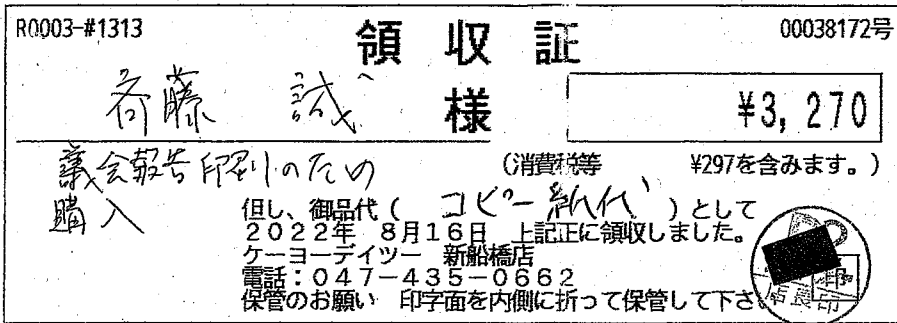 R0003-#1313 領収証 00038172号
斉藤 誠 様 ¥3,270
議会報告印刷のため (消費税等 ¥297を含みます。)
購入 但し、御品代( コピー紙代 )として
2022年 8月16日 上記正に領収しました。
ケーヨーデイツー 新船橋店
電話:047-435-0662
保管のお願い 印字面を内側に折って保管して下さ
店長印